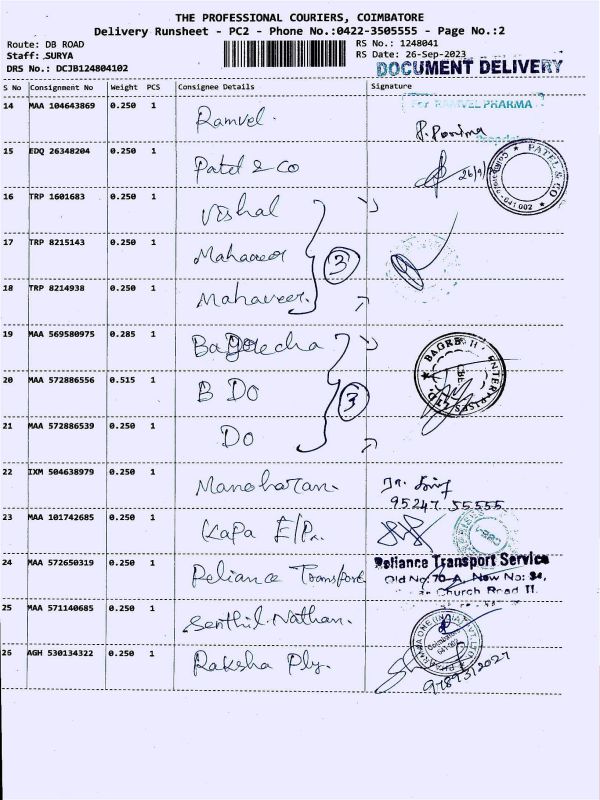 THE PROFESSIONAL COURIERS, COIMBATORE
Delivery Runsheet - PC2 - Phone No.:0422-3505555 - Page No.:2
Route: DB ROAD RS No.: 1248041
Staff: SURYA RS Date: 26-Sep-2023
DRS No.: DCJB124804102 DOCUMENT DELIVERY
S No Consignment No Weight PCS Consignee Details Signature
14 MAA 104643869 0.250 1 Ramvel. For RAMVEL PHARMA
15 EDQ 26348204 0.250 1 Patel & Co 26/9/ PATEL & CO
16 TRP 1601683 0.250 1 Vishal
17 TRP 8215143 0.250 1 Mahaveer 3
18 TRP 8214938 0.250 1 Mahaveer.
19 MAA 569580975 0.285 1 Bagrecha
20 MAA 572886556 0.515 1 B Do 3 ENTERPRISES LTD.
21 MAA 572886539 0.250 1 Do
22 IXM 504638979 0.250 1 Manoharan.
95247 55555
23 MAA 101742685 0.250 1 Kapa E/Px.
24 MAA 572650319 0.250 1 Reliance Transport Reliance Transport Service
Old No: 70-A, New No: 34,
Church Road II.
25 MAA 571140685 0.250 1 Senthil Nathan.
26 AGH 530134322 0.250 1 Raksha Ply.
9789312027